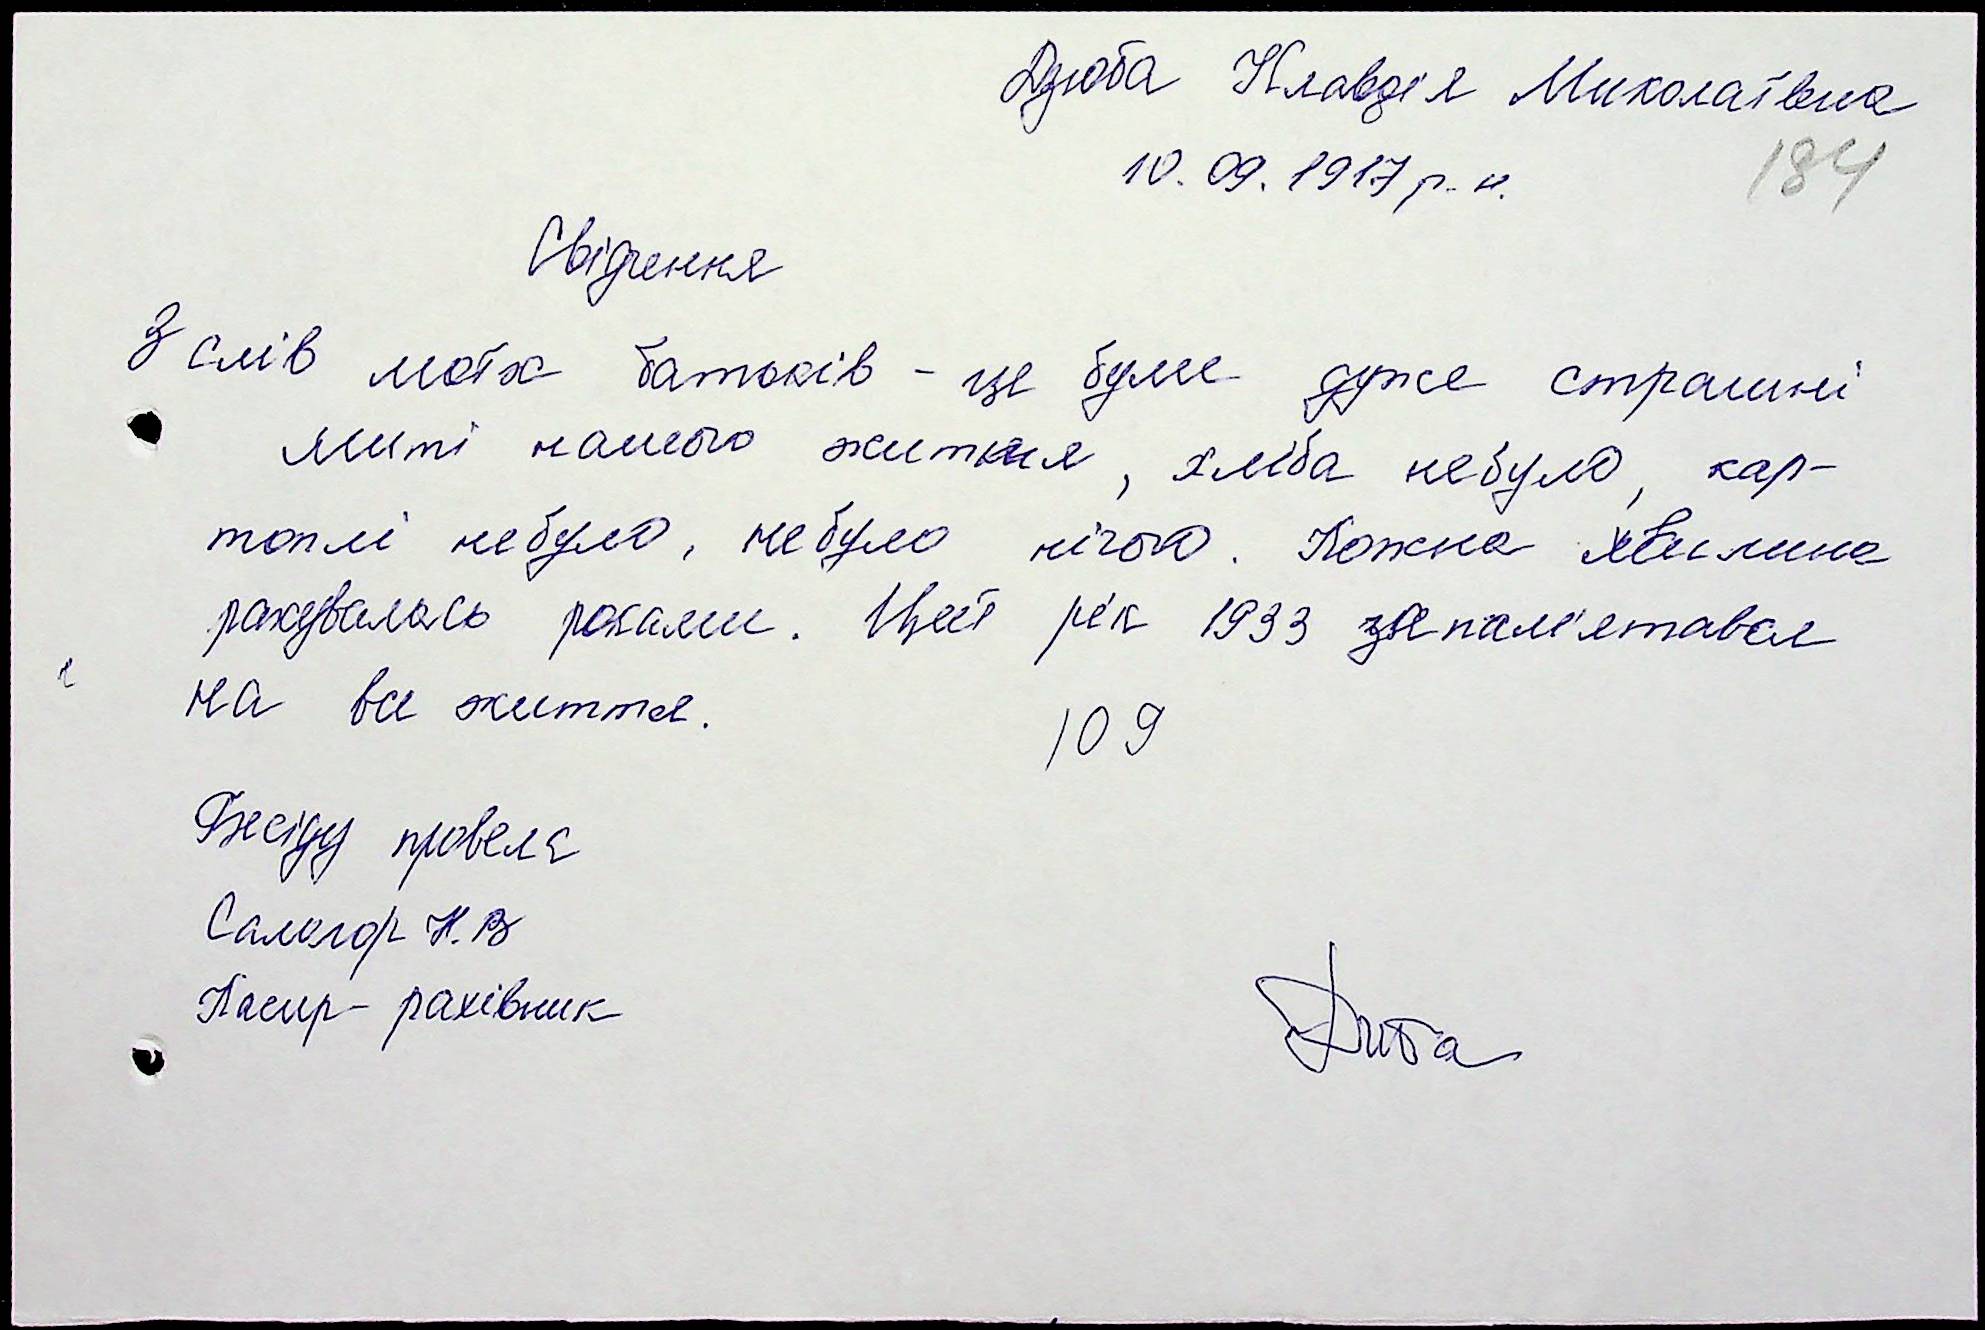 Дзюба Клавдія Миколаївна
10.09.1917 р.н.
184
Свідчення
З слів моїх батьків - це були дуже страшні
миті нашого життя, хліба небуло, кар-
топлі небуло, небуло нічого. Кожна хвилина
рахувалась роками. Цей рік 1933 запам'ятавсл
на все життя.
109
Бесіду провела
Салогор Н.В
Касир - рахівник